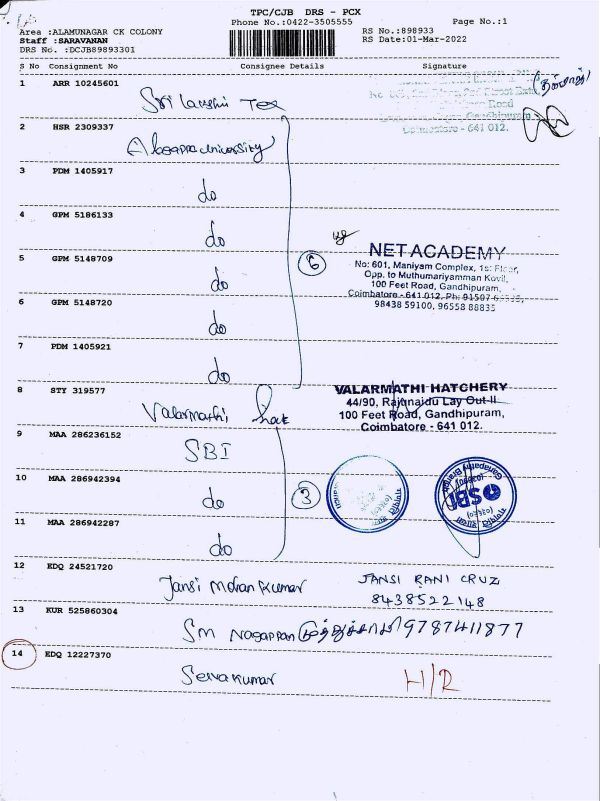 TPC/CJB DRS - PCX
Phone No.:0422-3505555
Page No.:1
Area :ALAMUNAGAR CK COLONY
RS No.:898933
Staff :SARAVANAN
RS Date:01-Mar-2022
DRS No. :DCJB89893301
S No Consignment No Consignee Details Signature
1 ARR 10245601
Sri Lakshi Tex
Road
Gandhipuram
Coimbatore - 641 012.
2 HSR 2309337
Alagappa University
3 PDM 1405917
do
4 GPM 5186133
do
6
NET ACADEMY
No: 601, Maniyam Complex, 1st Floor,
Opp. to Muthumariyamman Kovil,
100 Feet Road, Gandhipuram,
Coimbatore - 641 012. Ph: 91507
98438 59100, 96558 88835
5 GPM 5148709
do
6 GPM 5148720
do
7 PDM 1405921
do
8 STY 319577
Valarmathi, hat
VALARMATHI HATCHERY
44/90, Rajunaidu Lay Out-II
100 Feet Road, Gandhipuram,
Coimbatore - 641 012.
9 MAA 286236152
SBI
10 MAA 286942394
do
3
SBI
Ganapathy Branch
11 MAA 286942287
do
12 EDQ 24521720
Jansi Mohan Kumar
JANSI RANI CRUZ
8438522148
13 KUR 525860304
SM Nagappan
முத்துச்சாமி 9787411877
14 EDQ 12227370
Selvakumar
H/R